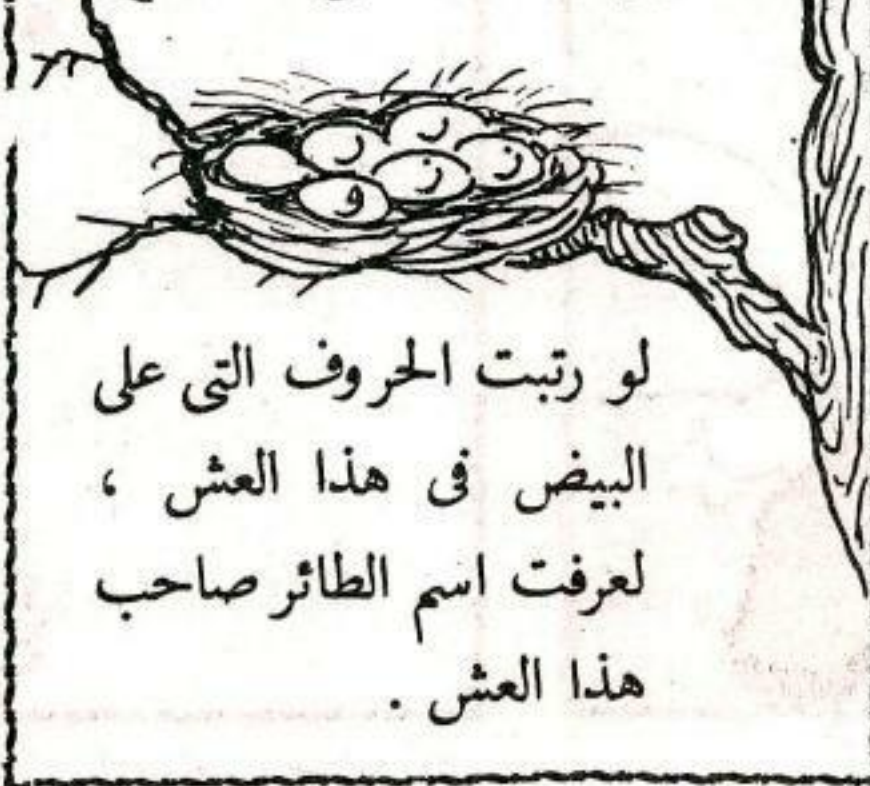 ر
ر
ز
ز
و
لو رتبت الحروف التى على
البيض فى هذا العش ،
لعرفت اسم الطائر صاحب
هذا العش .